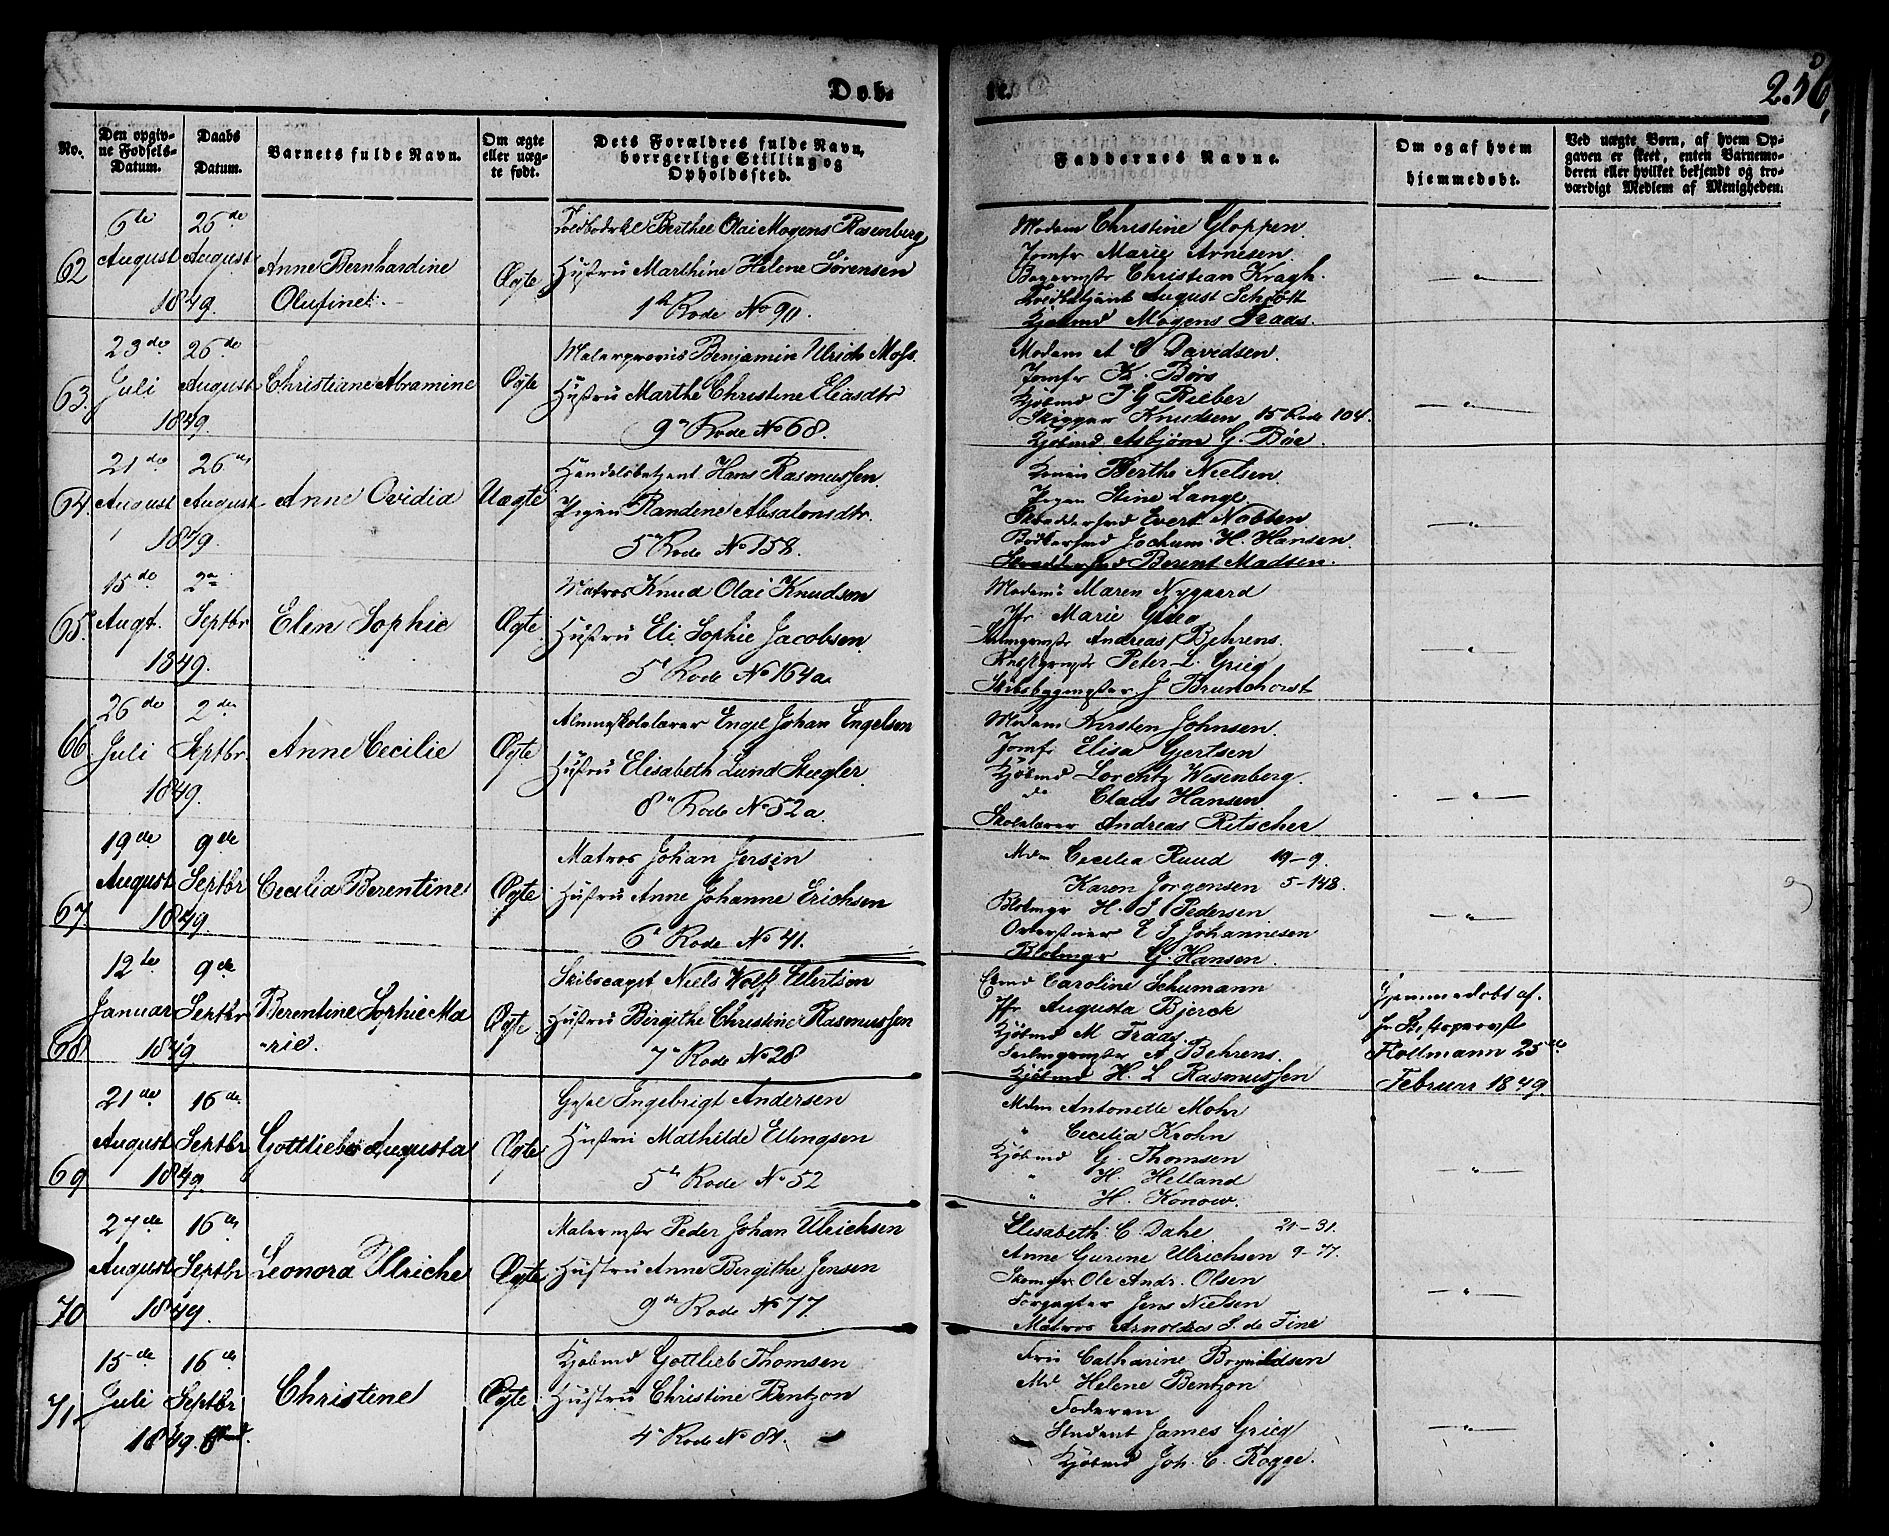 Døb-
te.
256
No.
Den opgiv-
ne Fødsels-
Datum.
Daabs
Datum.
Barnets fulde Navn.
Om ægte
eller uæg-
te født.
Dets Forældres fulde Navn,
borrgerlige Stilling og
Opholdssted.
Faddernes Navne.
Om og af hvem
hjemmedøbt.
Ved uægte Børn, af hvem Op-
gaven er skeet, enten Barnemo-
deren eller hvilket bekjendt og tro-
værdigt Medlem af Menigheden.
62
6te August 1849.
26de August
Anne Bernhardine
Olufine
Ægte
Berthel Olai Mogens Rosenberg
Hustru Marthine Helene Sørensen
1ste Rode No 90.
Madam Christine Gloppen
Jomfr Marie Arnesen
Christian Kragh.
August Schjøtt
Kjøbmd Mogens Traas.
— " —
63.
23de Juli 1849.
26de August
Christiane Abramine
Ægte
Malersvend Benjamin Ulrich Moss.
Hustru Marthe Christine Eliasdtr
9de Rode No 68.
Madam A C Davidsen.
Jomfr K. Børs
Kjøbmd P G Rieber
Skipper Knudsen 15 Rode 104.
Kjøbmd Asbjørn G. Bøe.
— " —
64.
21de August 1849.
26de August
Anne Ovidia
Uægte
Handelsbetjent Hans Rasmussen.
Pigen Randine Absalonsdtr.
5te Rode No 158.
Konen Berthe Nielsen
Pigen Stine Lange
Skreddersvd Evert Nobben
Bødkersvd Jochum H. Hansen.
Skreddersvd Berent Madsen.
— " —
65.
15de Augt. 1849.
2den Septbr
Elen Sophie
Ægte.
Matros Knud Olai Knudsen
Hustru Eli Sophie Jacobsen
5te Rode No 164a
Madame Maren Nygaard
Jfr Marie Grieg
Andreas Behrens
Peter L. Grieg
Skibsbygmester J Brunchorst
— " —
66.
26de Juli 1849.
2den Septbr.
Anne Cecilie
Ægte
Almueskolelærer Engel Johan Engelsen
Hustru Elisabeth Lund Stegler
8de Rode No 52a.
Madam Kirsten Johnsen.
Jomfr Elisa Gjertsen
Kjøbmd Lorentz Wesenberg.
do Claus Hansen
Skolelærer Andreas Ritscher
— " —
67.
19de August 1849.
9de Septbr
Cecilia Berentine
Ægte
Matros Johan Jersin
Hustru Anne Johanne Erichsen
6te Rode No 41.
Mdm Cecilia Ruud 19–9.
Karen Jørgensen 5–148.
H. J Pedersen
E J Johannesen
G. Hansen.
— " —
68
12te Januar 1849
9de Septbr
Berentine Sophie Ma
rie.
Ægte.
Skibscapt Niels Wolff Ellertsen
Hustru Birgithe Christine Rasmussen
7de Rode No 28
Caroline Schumann
Jfr Augusta Bjerck
Kjøbmd M Traas.
A Behrens.
Kjøbmd H. L Rasmussen
Hjemmedøbt af
Hr Stiftsprovst
Holtmann 25de
Februar 1849.
69
21de August 1849.
16de Septbr
Gottliebe Augusta
Ægte
Gesel Ingebrigt Andersen
Hustru Mathilde Ellingsen
5te Rode No 52
Mdm Antonette Mohr
" Cecilia Krohn
Kjøbmd G. Thomsen
" H. Helland
" H. Konow.
— " —
70
27de August 1849.
16de Septbr
Leonora Ulriche
Ægte
Malermstr Peder Johan Ulrichsen
Hustru Anne Birgithe Jensen
9de Rode No 77.
Elisabeth C. Dahl 21–31.
Anne Gurine Ulrichsen 9–77.
Ole Andr. Olsen
Forpagter Jens Nielsen
Matros Arnoldus S. de Fine
— " —
71
15de Juli 1849.
16de Septbr
Christine
Ægte
Kjøbmd Gottlieb Thomsen
Hustru Christine Bentzon
4de Rode No 81.
Fru Catharine Brynildsen
Md Helene Bentzon
Faderen
Student James Grieg
Kjøbmd Joh. C. Rogge.
— " —